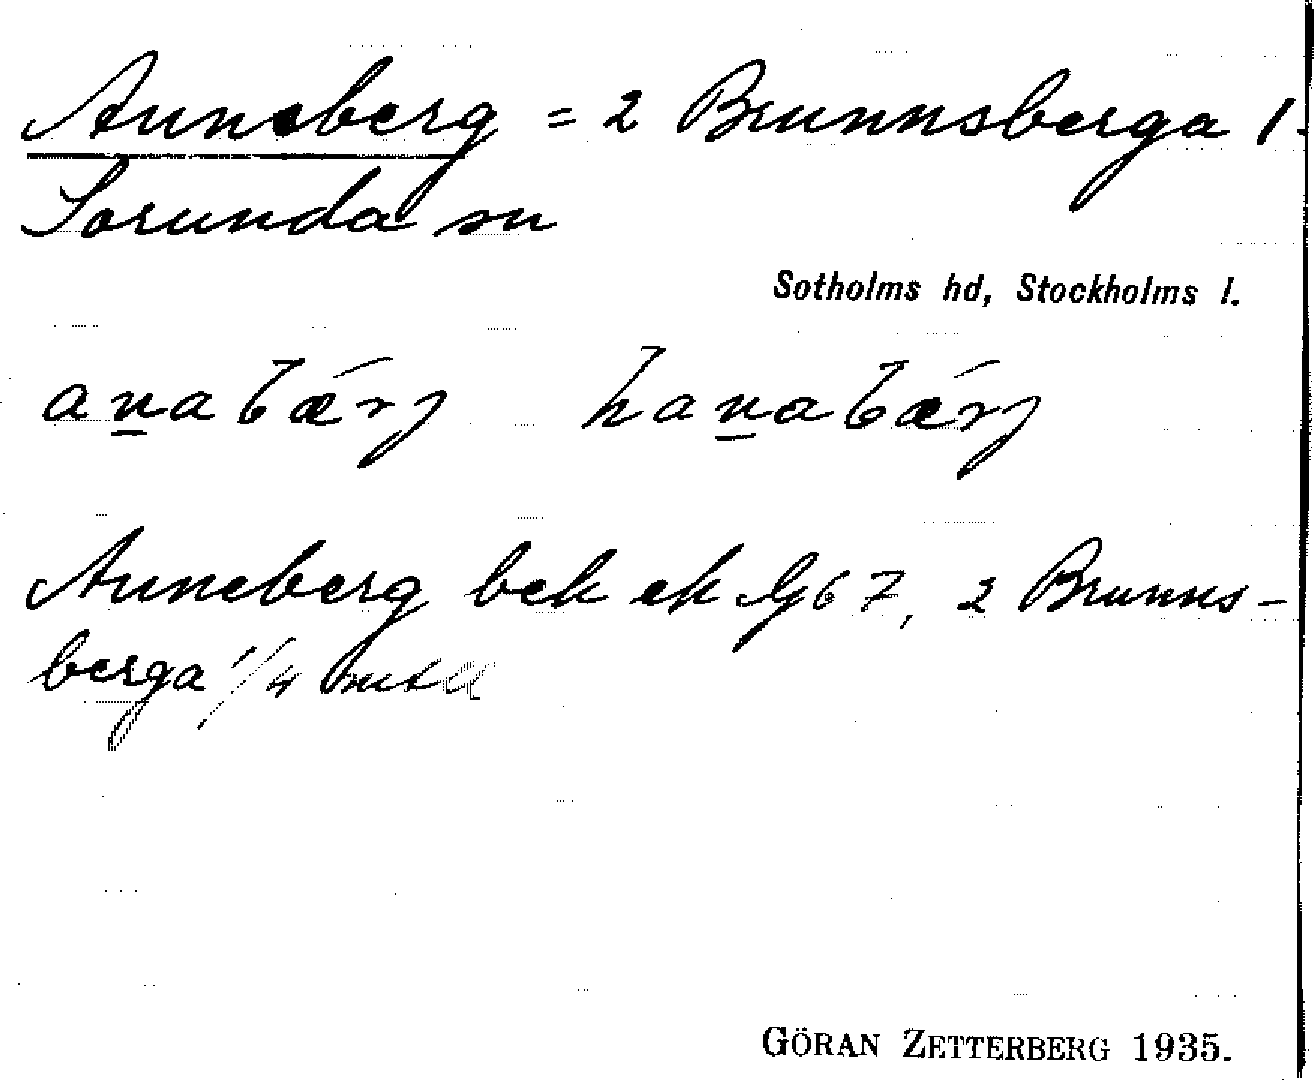 Anneberg = 2 Brunnsberga 1
Sorunda sn
Sotholms hd, Stockholms l.
anabǽrj hanabǽrj
Anneberg bek ek G67, 2 Brunns-
berga 1/4 mtl
GÖRAN ZETTERBERG 1935.